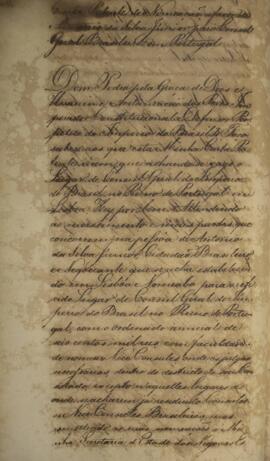 Carta Patente de Nomeação a favor de
Antonio da Silva Junior para Consul
Geral do Brasil em Portugal
Dom Pedro pela Graça de Deos e
Unanime Acclamação dos Povos Im-
perador Constitucional e Defensor Per-
petuo do Imperio do Brasil &. Faço
saber aos que esta Minha Carta Pa-
tente virem, que achando-se vago o
Lugar de Consul Geral do Imperio
do Brasil no Reino de Portugal em
Lisboa, Hei por bem, Attendendo
ao merecimento e mais partes, que
concorrem na pessoa de Antonio
da Silva Junior Cidadão Brasileiro
e Negociante que se acha estabeleci-
do em Lisboa e Nomealo para o refe-
rido Lugar de Consul Geral do Im-
perio do Brasil no Reino de Portu-
gal, com o Ordenado annual de
oito centos mil reis, com faculdade
de nomear Vice Consules onde os julgar
necessarios dentro do districto do seu Con-
sulado, excepto naquelles lugares a-
onde acharem já residindo Consules
ou Vice Consules Brasileiros,
Mi-
nha Secretaria d'Estado dos Negocios Es